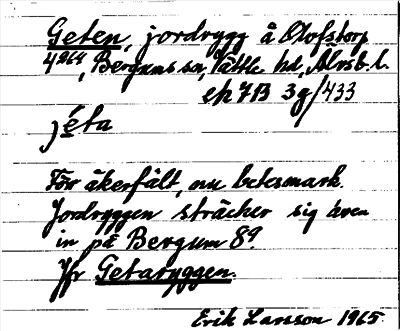 Geten, jordrygg å Olofstorp
4²⁶⁴, Bergums sn, Vättle hd, Älvsb. l.
ek 7B 3g/433
jéta
Förr åkerfält, nu betesmark.
Jordryggen sträcker sig även
in på Bergum 8⁹.
Jfr Getaryggen.
Erik Larsson 1965